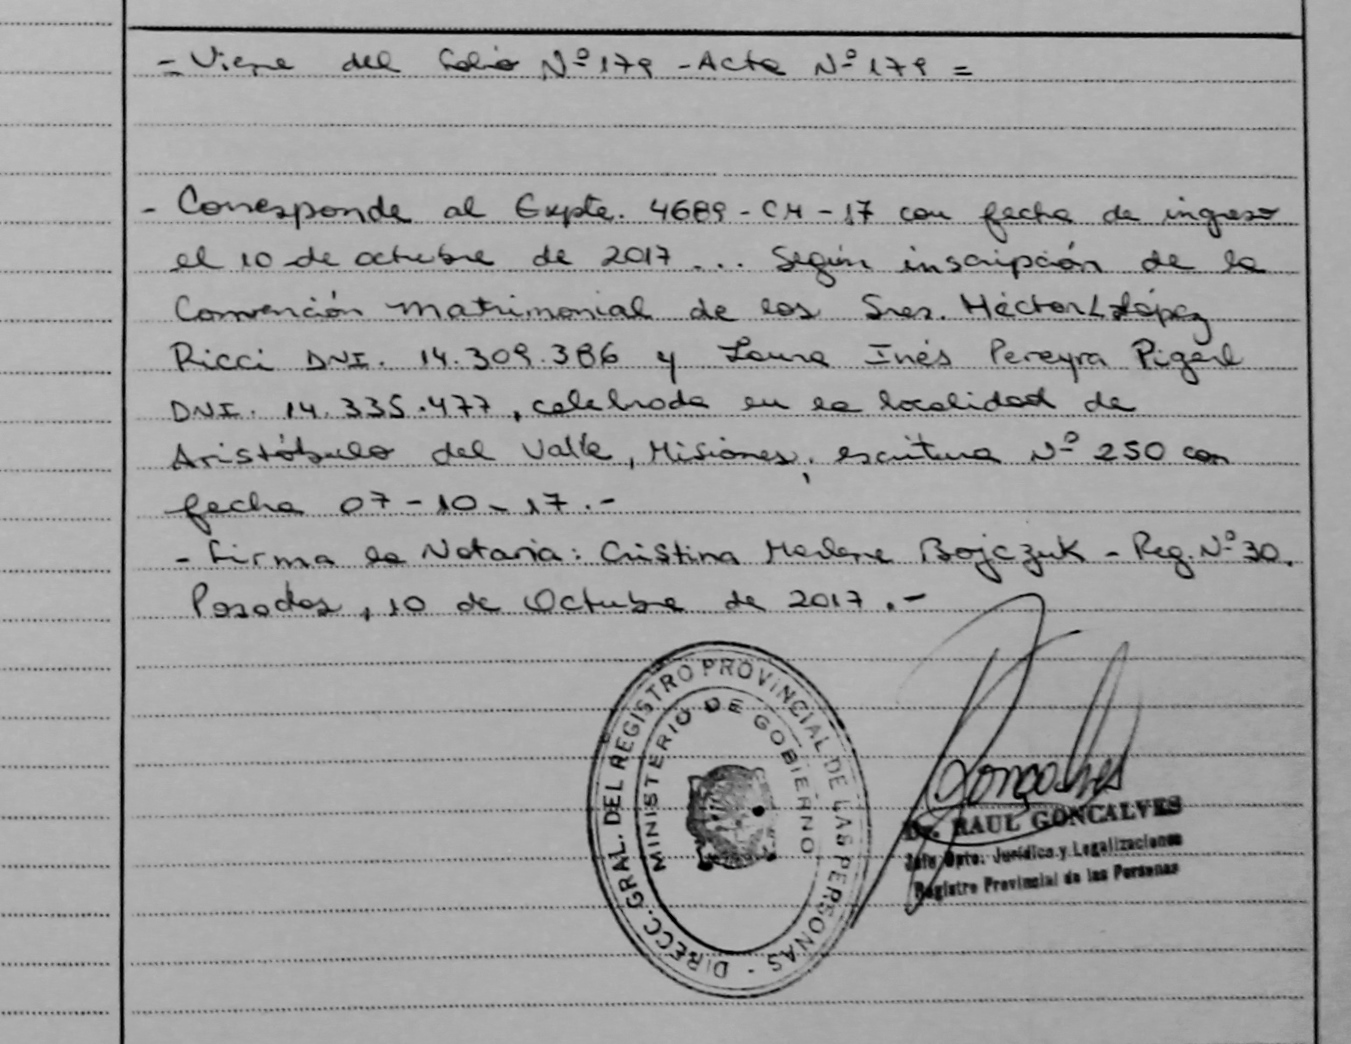 - Viene del Folio Nº 179 - Acta Nº 179 =
- Corresponde al Expte. 4689 - CM - 17 con fecha de ingreso
el 10 de octubre de 2017 ... Según inscripción de la
Convención Matrimonial de los Sres. Héctor López
Ricci DNI. 14.309.386 y Laura Inés Pereyra Pigerl
DNI. 14.335.477, celebrada en la localidad de
Aristóbulo del Valle, Misiones, escritura Nº 250 con
fecha 07-10-17.-
- Firma la Notaria: Cristina Marlene Bojczuk - Reg. Nº 30.
Posadas, 10 de Octubre de 2017.-
DIRECC. GRAL. DEL REGISTRO PROVINCIAL DE LAS PERSONAS -
MINISTERIO DE GOBIERNO
Goncalves
Dr. RAUL GONCALVES
Jefe Dpto. Jurídico y Legalizaciones
Registro Provincial de las Personas